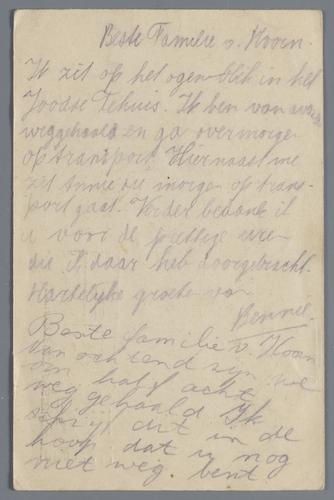 Beste Familie v. Hoorn.
Ik zit op het ogenblik in het
Joodse Tehuis. Ik ben van
weggehaald en ga overmorgen
op transport. Hiernaast me
zit Annie die morgen op trans-
port gaat. Verder bedank ik
u voor de prettige uren
die ik daar heb doorgebracht.
Hartelijke groeten van
Bennie.
Beste familie v. Hoorn
Van ochtend zijn we
om half acht
weg gehaald Ik
dit in de
hoop dat u nog
niet weg. bent